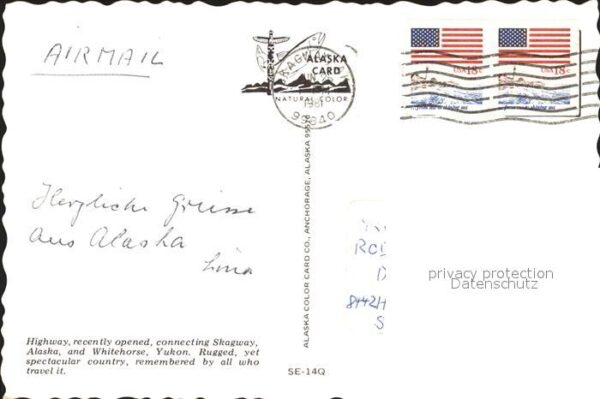 AIRMAIL
ALASKA
CARD
NATURAL COLOR
SKAGWAY
1981
99840
USA 18c
USA 18c
Herzliche Grüsse
aus Alaska
Lina
ALASKA COLOR CARD CO., ANCHORAGE, ALASKA
privacy protection
Datenschutz
Highway, recently opened, connecting Skagway,
Alaska, and Whitehorse, Yukon. Rugged, yet
spectacular country, remembered by all who
travel it.
SE-14Q